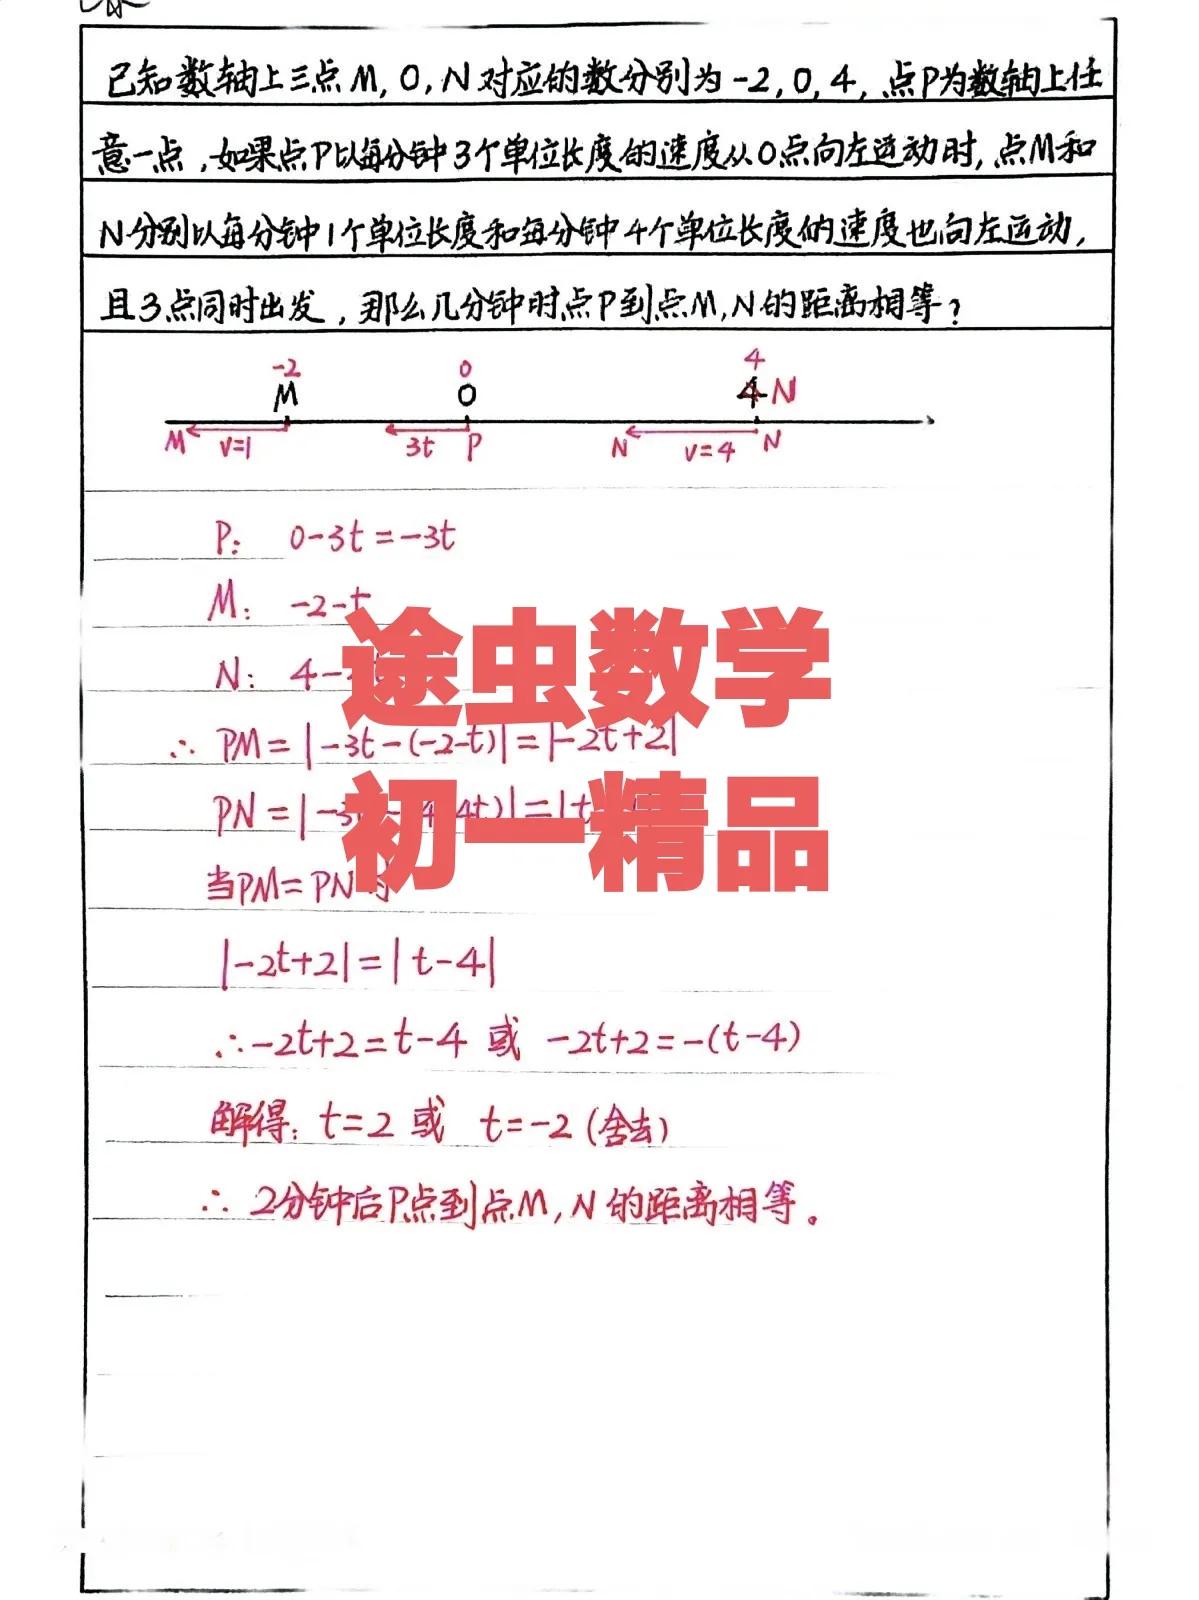 已知数轴上三点M,O,N对应的数分别为-2,0,4,点P为数轴上任
意一点,如果点P以每分钟3个单位长度的速度从O点向左运动时,点M和
N分别以每分钟1个单位长度和每分钟4个单位长度的速度也向左运动,
且3点同时出发,那么几分钟时点P到点M,N的距离相等?
-2 0 4
M O N
M v=1 3t P N v=4 N
P: 0-3t=-3t
M: -2-t
N: 4-
途虫数学
∴ PM=|-3t-(-2-t)|=|-2t+2|
PN=|-3 4t)|=|t
初一精品
当PM=PN
|-2t+2|=|t-4|
∴-2t+2=t-4 或 -2t+2=-(t-4)
解得: t=2 或 t=-2 (舍去)
∴ 2分钟后P点到点M,N的距离相等。